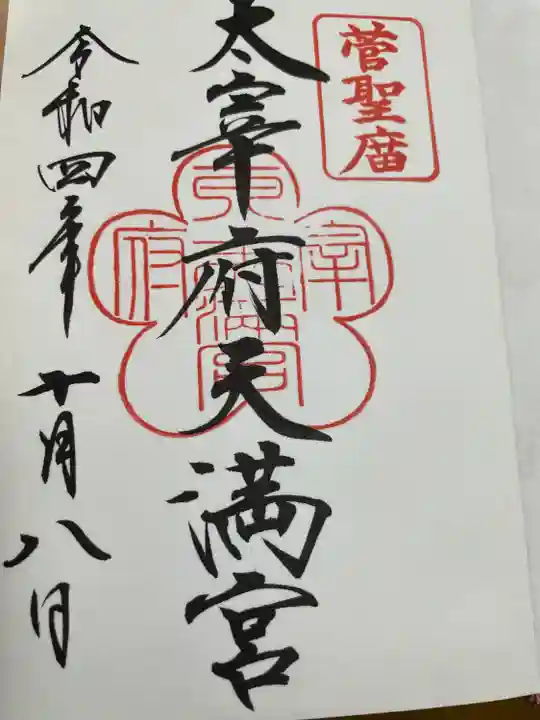 菅聖庿
太宰府天満宮
令和四年十月八日